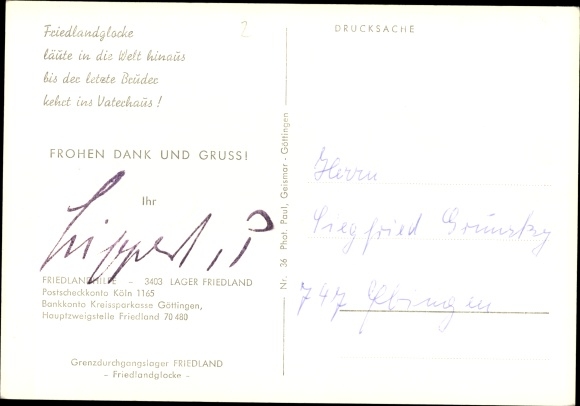 Friedlandglocke
läute in die Welt hinaus
bis der letzte Brüder
kehrt ins Vaterhaus!
2
FROHEN DANK UND GRUSS!
Ihr
Lippert, P
FRIEDLANDHILFE – 3403 LAGER FRIEDLAND
Postscheckkonto Köln 1165
Bankkonto Kreissparkasse Göttingen,
Hauptzweigstelle Friedland 70 480
Grenzdurchgangslager FRIEDLAND
– Friedlandglocke –
Nr. 36 Phot. Paul, Geismar - Göttingen
DRUCKSACHE
Herrn
Siegfried Grünzky
747 Ebingen